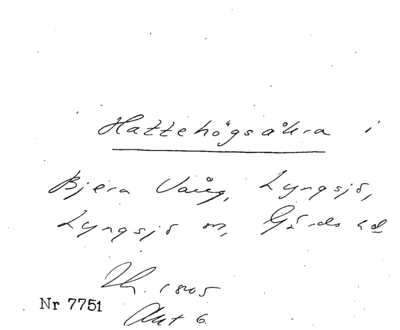 Hattehögsåkra i
Bjera Vång, Lyngsjö,
Lyngsjö sn, Gärds hd
Lh. 1805
Nr 7751
Akt 6